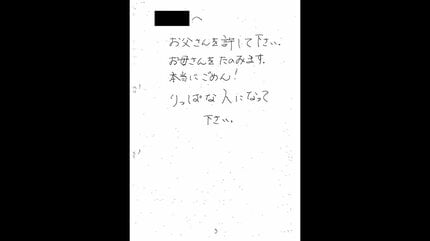 へ
お父さんを許して下さい。
お母さんをたのみます.
本当にごめん!
りっぱな人になって
下さい。